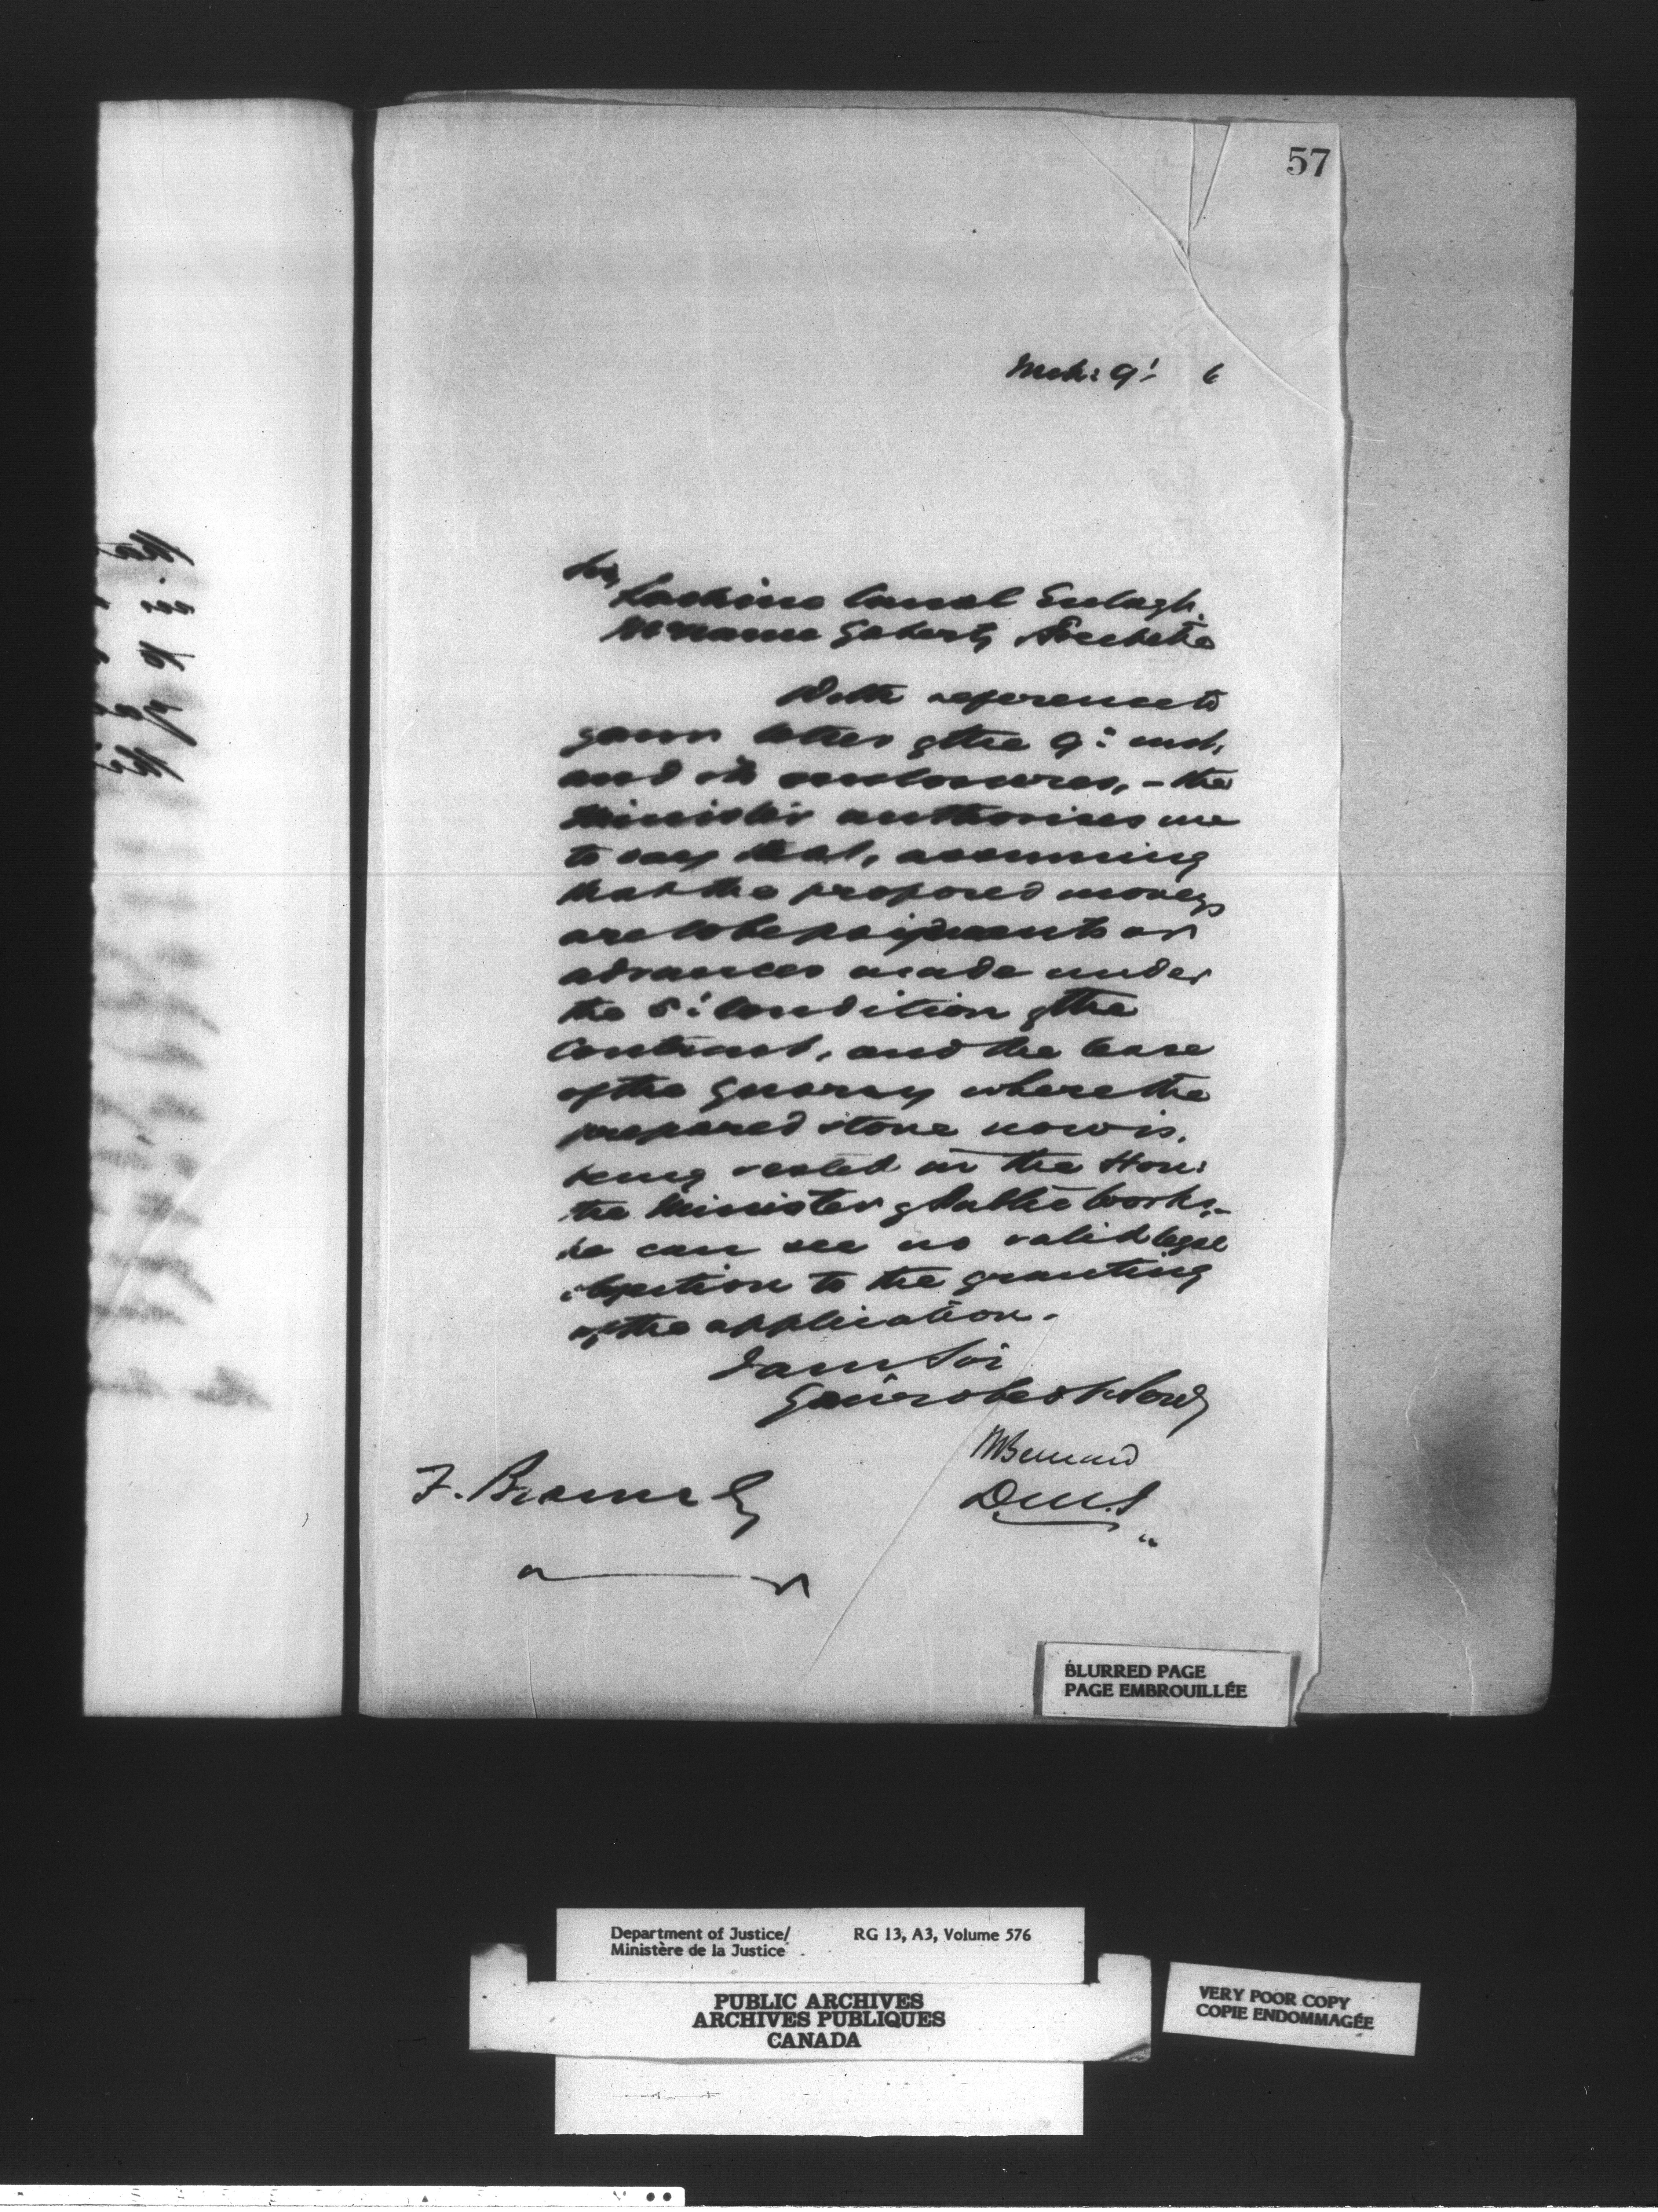 57
Mch: 9: 6
Sir,
Lachine Canal Enlagt.
McNamee Gaherty Frechette
With reference to
your letter of the 9: inst,
and its enclosures, - the
Minister authorises me
to say that, assuming
that the proposed moneys
are to be payments or
advances made under
the 5: Condition of the
Contract, and the lease
of the Quarry where the
prepared stone now is,
being vested in the Hon:
the Minister of Public Works, -
he can see no valid legal
objection to the granting
of the application.
I am Sir
Your obedt Servt
HBernard
D.M.J
F. Braun Esq
BLURRED PAGE
PAGE EMBROUILLÉE
Department of Justice/ RG 13, A3, Volume 576
Ministère de la Justice
PUBLIC ARCHIVES
ARCHIVES PUBLIQUES
CANADA
VERY POOR COPY
COPIE ENDOMMAGÉE